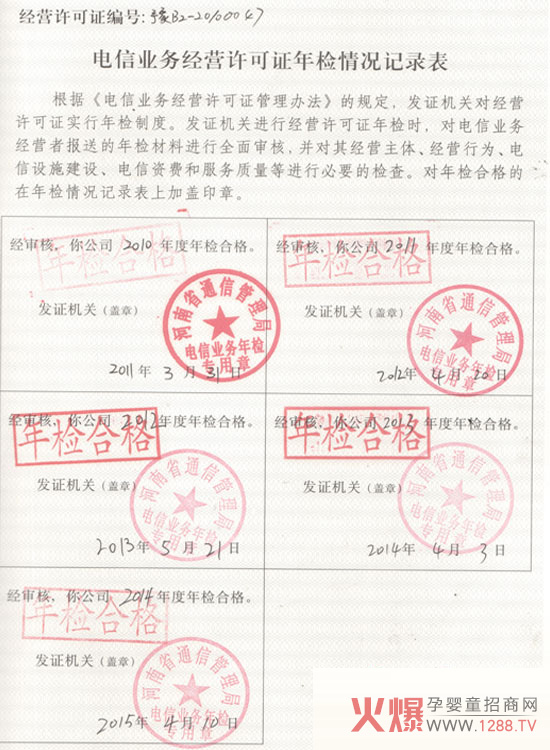 经营许可证编号:豫B2-20100047
电信业务经营许可证年检情况记录表
根据《电信业务经营许可证管理办法》的规定，发证机关对经营
许可证实行年检制度。发证机关进行经营许可证年检时，对电信业务
经营者报送的年检材料进行全面审核，并对其经营主体、经营行为、电
信设施建设、电信资费和服务质量等进行必要的检查。对年检合格的
在年检情况记录表上加盖印章。
经审核，你公司 2010 年度年检合格。
年检合格
发证机关（盖章）
河南省通信管理局
电信业务年检
专用章
2011 年 3 月 31 日
经审核，你公司 2011 年度年检合格。
年检合格
发证机关（盖章）
河南省通信管理局
电信业务年检
专用章
2012 年 4 月 20 日
经审核，你公司 2012 年度年检合格。
年检合格
发证机关（盖章）
河南省通信管理局
电信业务年检
专用章
2013 年 5 月 21 日
经审核，你公司 2013 年度年检合格。
年检合格
发证机关（盖章）
河南省通信管理局
电信业务年检
专用章
2014 年 4 月 3 日
经审核，你公司 2014 年度年检合格。
年检合格
发证机关（盖章）
河南省通信管理局
电信业务年检
专用章
2015 年 4 月 10 日
火爆 孕婴童招商网
www.1288.TV